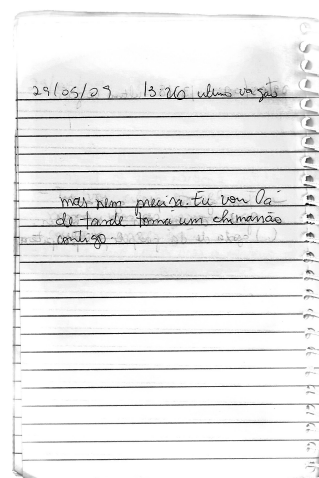 29/05/09 13:20 ultimo vagão
mas nem precisa. Eu vou lá
de tarde toma um chimarrão
contigo.